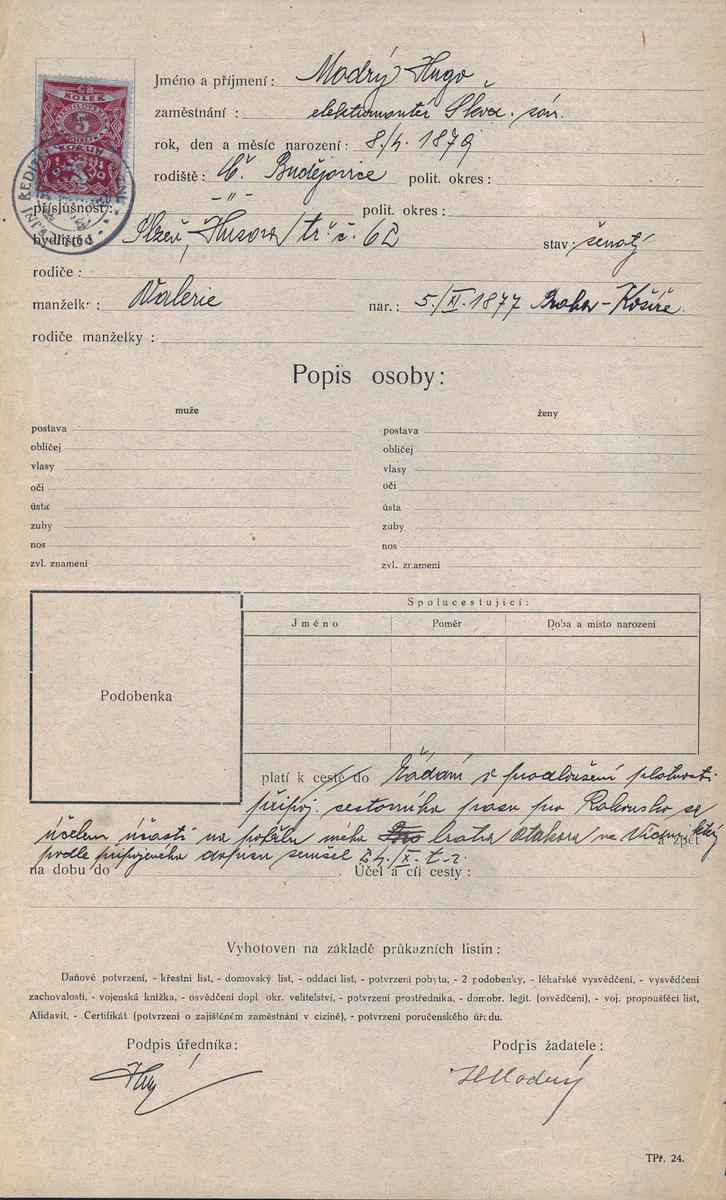 Jméno a příjmení: Modrý Hugo
ČR KOLEK
5
KORUN
1919
zaměstnání : elektromontér Škod. záv.
rok, den a měsíc narození: 8./4. 1879
rodiště: Č. Budějovice polit. okres:
příslušnost: -"- polit. okres:
bydliště: Plzeň, Husova tř. č. 62 stav: ženatý
rodiče :
manželka : Valerie nar.: 5./XI. 1877 Praha-Košíře
rodiče manželky :
Popis osoby:
muže ženy
postava postava
obličej obličej
vlasy vlasy
oči oči
ústa ústa
zuby zuby
nos nos
zvl. znamení zvl. znamení
Podobenka
Spolucestující:
Jméno Poměr Doba a místo narození
platí k cestě do Žádám o prodloužení platnosti
připoj. cestovního pasu pro Rakousko za
účelem účasti na pohřbu mého bratra Otakara ve Vídni, který a zpět
podle připojeného dopisu zemřel 24./X. t.r.
na dobu do . Účel a cíl cesty :
Vyhotoven na základě průkazních listin :
Daňové potvrzení, - křestní list, - domovský list, - oddací list, - potvrzení pobytu, - 2 podobenky, - lékařské vysvědčení, - vysvědčení
zachovalosti, - vojenská knížka, - osvědčení dopl. okr. velitelství, - potvrzení prostředníka, - domobr. legit. (osvědčení), - voj. propouštěcí list,
Afidavit, - Certifikát (potvrzení o zajištěném zaměstnání v cizině), - potvrzení poručenského úřadu.
Podpis úředníka: Podpis žadatele:
HModrý
TPř. 24.